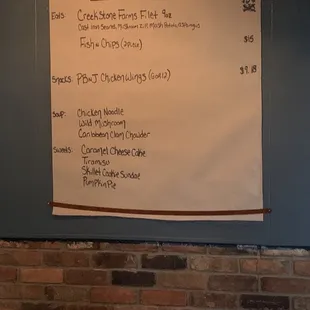 Eats: Creekstone Farms Filet 9oz
Cast Iron Seared, Mushroom, Mash Potato, Asparagus
Fish n Chips (2 Piece) $15
Snacks: PB n J Chicken Wings (6 or 12) $9.18
Soup: Chicken Noodle
Wild Mushroom
Caribbean Clam Chowder
Sweets: Caramel Cheese Cake
Tiramisu
Skillet Cookie Sundae
Pumpkin Pie